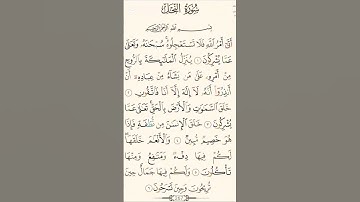 سُورَةُ النَّحْلِ
بِسْمِ اللَّهِ الرَّحْمَٰنِ الرَّحِيمِ
أَتَىٰ أَمْرُ اللَّهِ فَلَا تَسْتَعْجِلُوهُ سُبْحَٰنَهُ وَتَعَٰلَىٰ
عَمَّا يُشْرِكُونَ ١ يُنَزِّلُ الْمَلَٰٓئِكَةَ بِالرُّوحِ
مِنْ أَمْرِهِ عَلَىٰ مَن يَشَآءُ مِنْ عِبَادِهِ أَنْ
أَنذِرُوٓا أَنَّهُ لَآ إِلَٰهَ إِلَّآ أَنَا فَاتَّقُونِ ٢
خَلَقَ السَّمَٰوَٰتِ وَالْأَرْضَ بِالْحَقِّ تَعَٰلَىٰ عَمَّا
يُشْرِكُونَ ٣ خَلَقَ الْإِنسَٰنَ مِن نُّطْفَةٍ فَإِذَا
هُوَ خَصِيمٌ مُّبِينٌ ٤ وَالْأَنْعَٰمَ خَلَقَهَا
لَكُمْ فِيهَا دِفْءٌ وَمَنَٰفِعُ وَمِنْهَا
تَأْكُلُونَ ٥ وَلَكُمْ فِيهَا جَمَالٌ حِينَ
تُرِيحُونَ وَحِينَ تَسْرَحُونَ ٦